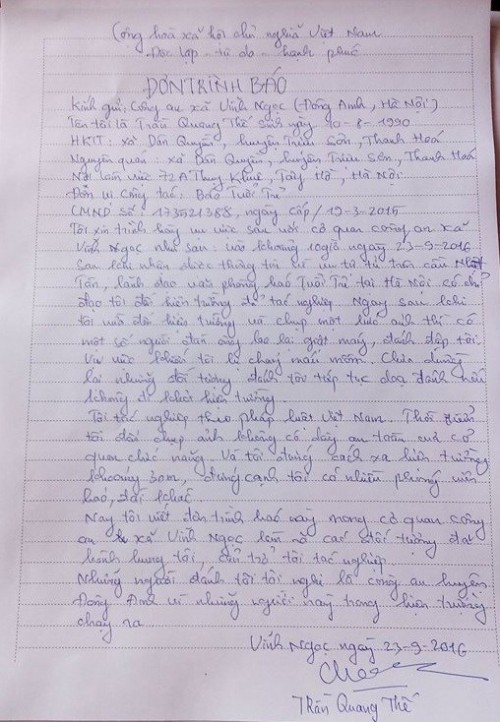 Cộng hoà xã hội chủ nghĩa Việt Nam
Độc lập - tự do - hạnh phúc
ĐƠN TRÌNH BÁO
Kính gửi, Công an xã Vĩnh Ngọc (Đông Anh, Hà Nội)
Tên tôi là Trần Quang Thế sinh ngày 10-8-1990
HKTT: xã Dân Quyền, huyện Triệu Sơn, Thanh Hoá
Nguyên quán: xã Dân Quyền, huyện Triệu Sơn, Thanh Hoá
Nơi làm việc 72A Thuỵ Khuê, Tây Hồ, Hà Nội
Đơn vị công tác: Báo Tuổi Trẻ
CMND số: 173521388, ngày cấp 19-3-2015
Tôi xin trình bày vụ việc sau với cơ quan công an xã
Vĩnh Ngọc như sau: vào khoảng 10giờ ngày 23-9-2016
Sau khi nhận được thông tin về vụ tự tử trên cầu Nhật
Tân, lãnh đạo văn phòng báo Tuổi Trẻ tại Hà Nội có chỉ
đạo tôi đến hiện trường để tác nghiệp. Ngay sau khi
tôi vừa đến hiện trường và chụp một bức ảnh thì có
một số người đàn ông lao lại giật máy, đánh đập tôi.
Vụ việc khiến tôi bị chảy máu mồm. Chưa dừng
lại những đối tượng đánh tôi tiếp tục doạ đánh nếu
không đi khỏi hiện trường.
Tôi tác nghiệp theo pháp luật Việt Nam. Thời điểm
tôi đến chụp ảnh không có dây an toàn của cơ
quan chức năng. Và tôi đứng cách xa hiện trường
khoảng 30m, đứng cạnh tôi có nhiều phóng viên
báo, đài khác.
Nay tôi viết đơn trình báo này mong cơ quan công
an xã Vĩnh Ngọc làm rõ các đối tượng đã
hành hung tôi, cản trở tôi tác nghiệp.
Những người đánh tôi tôi nghi là công an huyện
Đông Anh vì những người này trong hiện trường
chạy ra
Vĩnh Ngọc ngày 23-9-2016
Trần Quang Thế